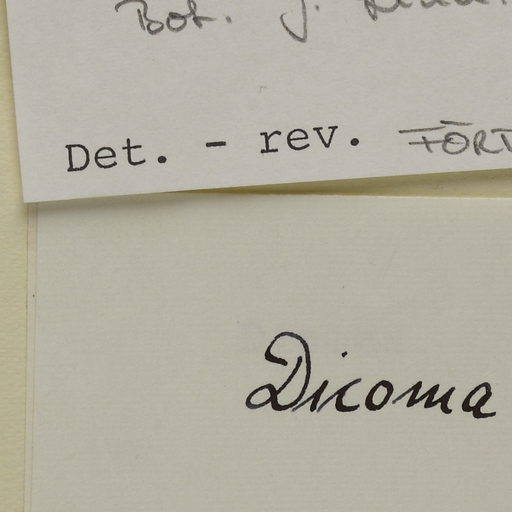 Bot. J.
Det. - rev. FÖRT
Dicoma